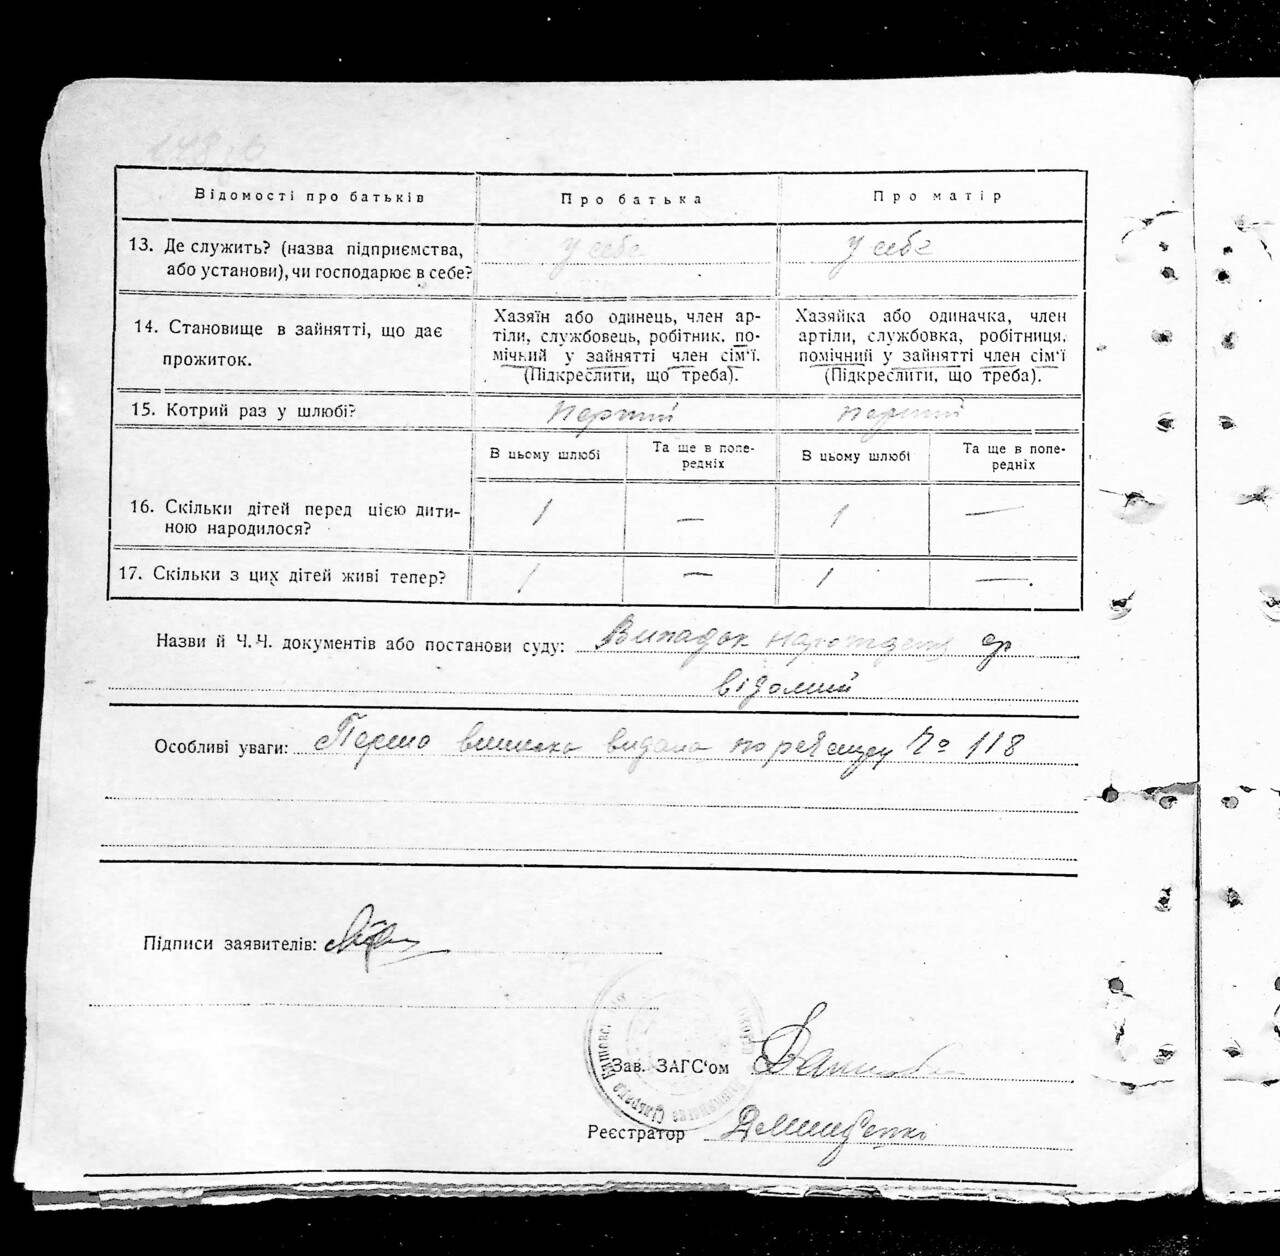 Відомості про батьків
Про батька
Про матір
13. Де служить? (назва підприємства,
або установи), чи господарює в себе?
у себе
у себе
14. Становище в зайнятті, що дає
прожиток.
Хазяїн або одинець, член ар-
тіли, службовець, робітник, по-
мічний у зайнятті член сім'ї.
(Підкреслити, що треба).
Хазяйка або одиначка, член
артіли, службовка, робітниця,
помічний у зайнятті член сім'ї
(Підкреслити, що треба).
15. Котрий раз у шлюбі?
перший
перший
В цьому шлюбі
Та ще в попе-
редніх
В цьому шлюбі
Та ще в попе-
редніх
16. Скільки дітей перед цією дити-
ною народилося?
1
—
1
—
17. Скільки з цих дітей живі тепер?
1
—
1
—
Назви й Ч.Ч. документів або постанови суду: Випадок
відомий
Особливі уваги: видана по № 118
Підписи заявителів:
Зав. ЗАГС'ом
Реєстратор